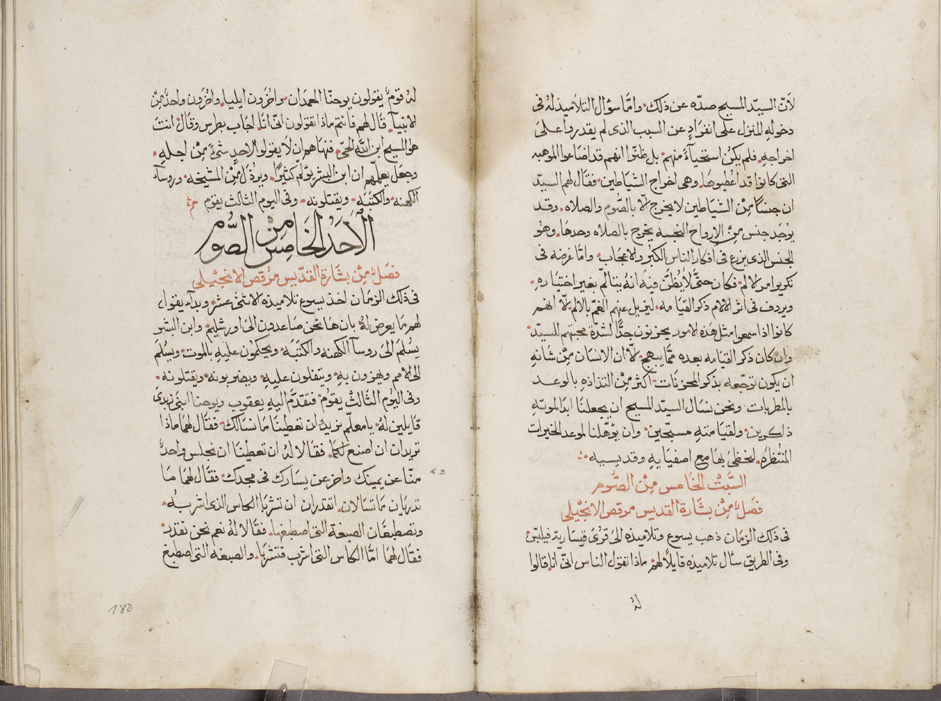 لانّ السيّد المسيح صدّه عن ذلك وامّا سؤال التلاميذ له في
دخوله المنزل على انفراد عن السبب الذي لم يقدروا على
اخراجه فلم يكن استحياءً منهم بل ظنّوا انهم قد اضاعوا الموهبه
التي كانوا قد اعُطيوها وهي اخراج الشياطين فقال لهم السيّد
ان جنسًا من الشياطين لا يخرج الا بالصوم والصلاه وقد
يوجد جنس من الارواح النجسه يخرج بالصلاه وحدها وهو
الجنس الذي يزرع في افكار الناس الكبر والاعجاب وامّا غرضه في
تكريرامر الالم فكان حتى لا يُظنّ فيه انه ينالم بغير اختياره
ويردف في اثر الالام ذكر القيامه ليزيل عنهم الغم بالالم لانهم
كانوا اذا سمعوا مثل هذه الامور يحزنون جدًّا لشدّة محبتهم للسيّد
وان كان ذكر القيامه بعده ممّا يبهجهم لان الانسان من شانه
ان يكون توجّعه بذكر المحزنات اكثر من التذاذه بالوعد
بالمطربات ونحن نسال السيّد المسيح ان يجعلنا ابدًا لموته
ذاكرين ولقيامته مسبّحين وان يؤهّلنا لموعد الخيرات
المنتظره لنحظى بها مع اصفيايه وقديسيه
السبت الخامس من الصوم
فصل من بشارة القديس مرقص الانجيلي
في ذلك الزمان ذهب يسوع وتلاميذه الى قرى قيسارية فيلبس
وفي الطريق سال تلاميذه قايلاً لهم ماذا تقول الناس انّي انا قالوا
له
له قوم يقولون يوحنّا المعمدان واخرون ايليا واخرون واحد من
الانبيآ قال لهم فانتم ماذا تقولون انّي انا اجاب بطرس وقال انت
هو المسيح ابن الله الحيّ فنهاهم ان لا يقولوا لاحدٍ شئ من اجله
وجعل يعلّمهم ان ابن البشر يولم كثيرًا ويرذل من المشيخه وروسآ
الكهنه والكتبه ويقتلونه وفي اليوم الثالث يقوم
الاحد الخامس من الصوم
فصل من بشارة القديس مرقص الانجيلي
في ذلك الزمان اخذ يسوع تلاميذه الاثني عشر وبداء يقول
لهم ما يعرض له بان ها نحن صاعدون الى اورشليم وابن البشر
يسلم الى روسآ الكهنه والكتبه ويحكمون عليه بالموت ويسلم
الى الامم ويهزون به ويتفلون عليه ويضربونه ويقتلونه
وفي اليوم الثالث يقوم فتقدّم اليه يعقوب ويوحنا ابني زبدى
قايلين له يا معلّم نريد ان تعطينا ما نسالك فقال لهما ماذا
تريدان ان اصنع لكما فقالا له ان تعطينا ان يجلس واحدٌ
منّا عن يمينك واخر عن يسارك في مجدك فقال لهما ما
تدريان ما تسالان اتقدران ان تشربا الكاس الذي اشربه
وتصطبغان الصبغه التي اصطبغها فقالا له نعم نحن نقدر
فقال لهما امّا الكاس التي اشرب فتشربا والصبغه التي اصطبغ
180